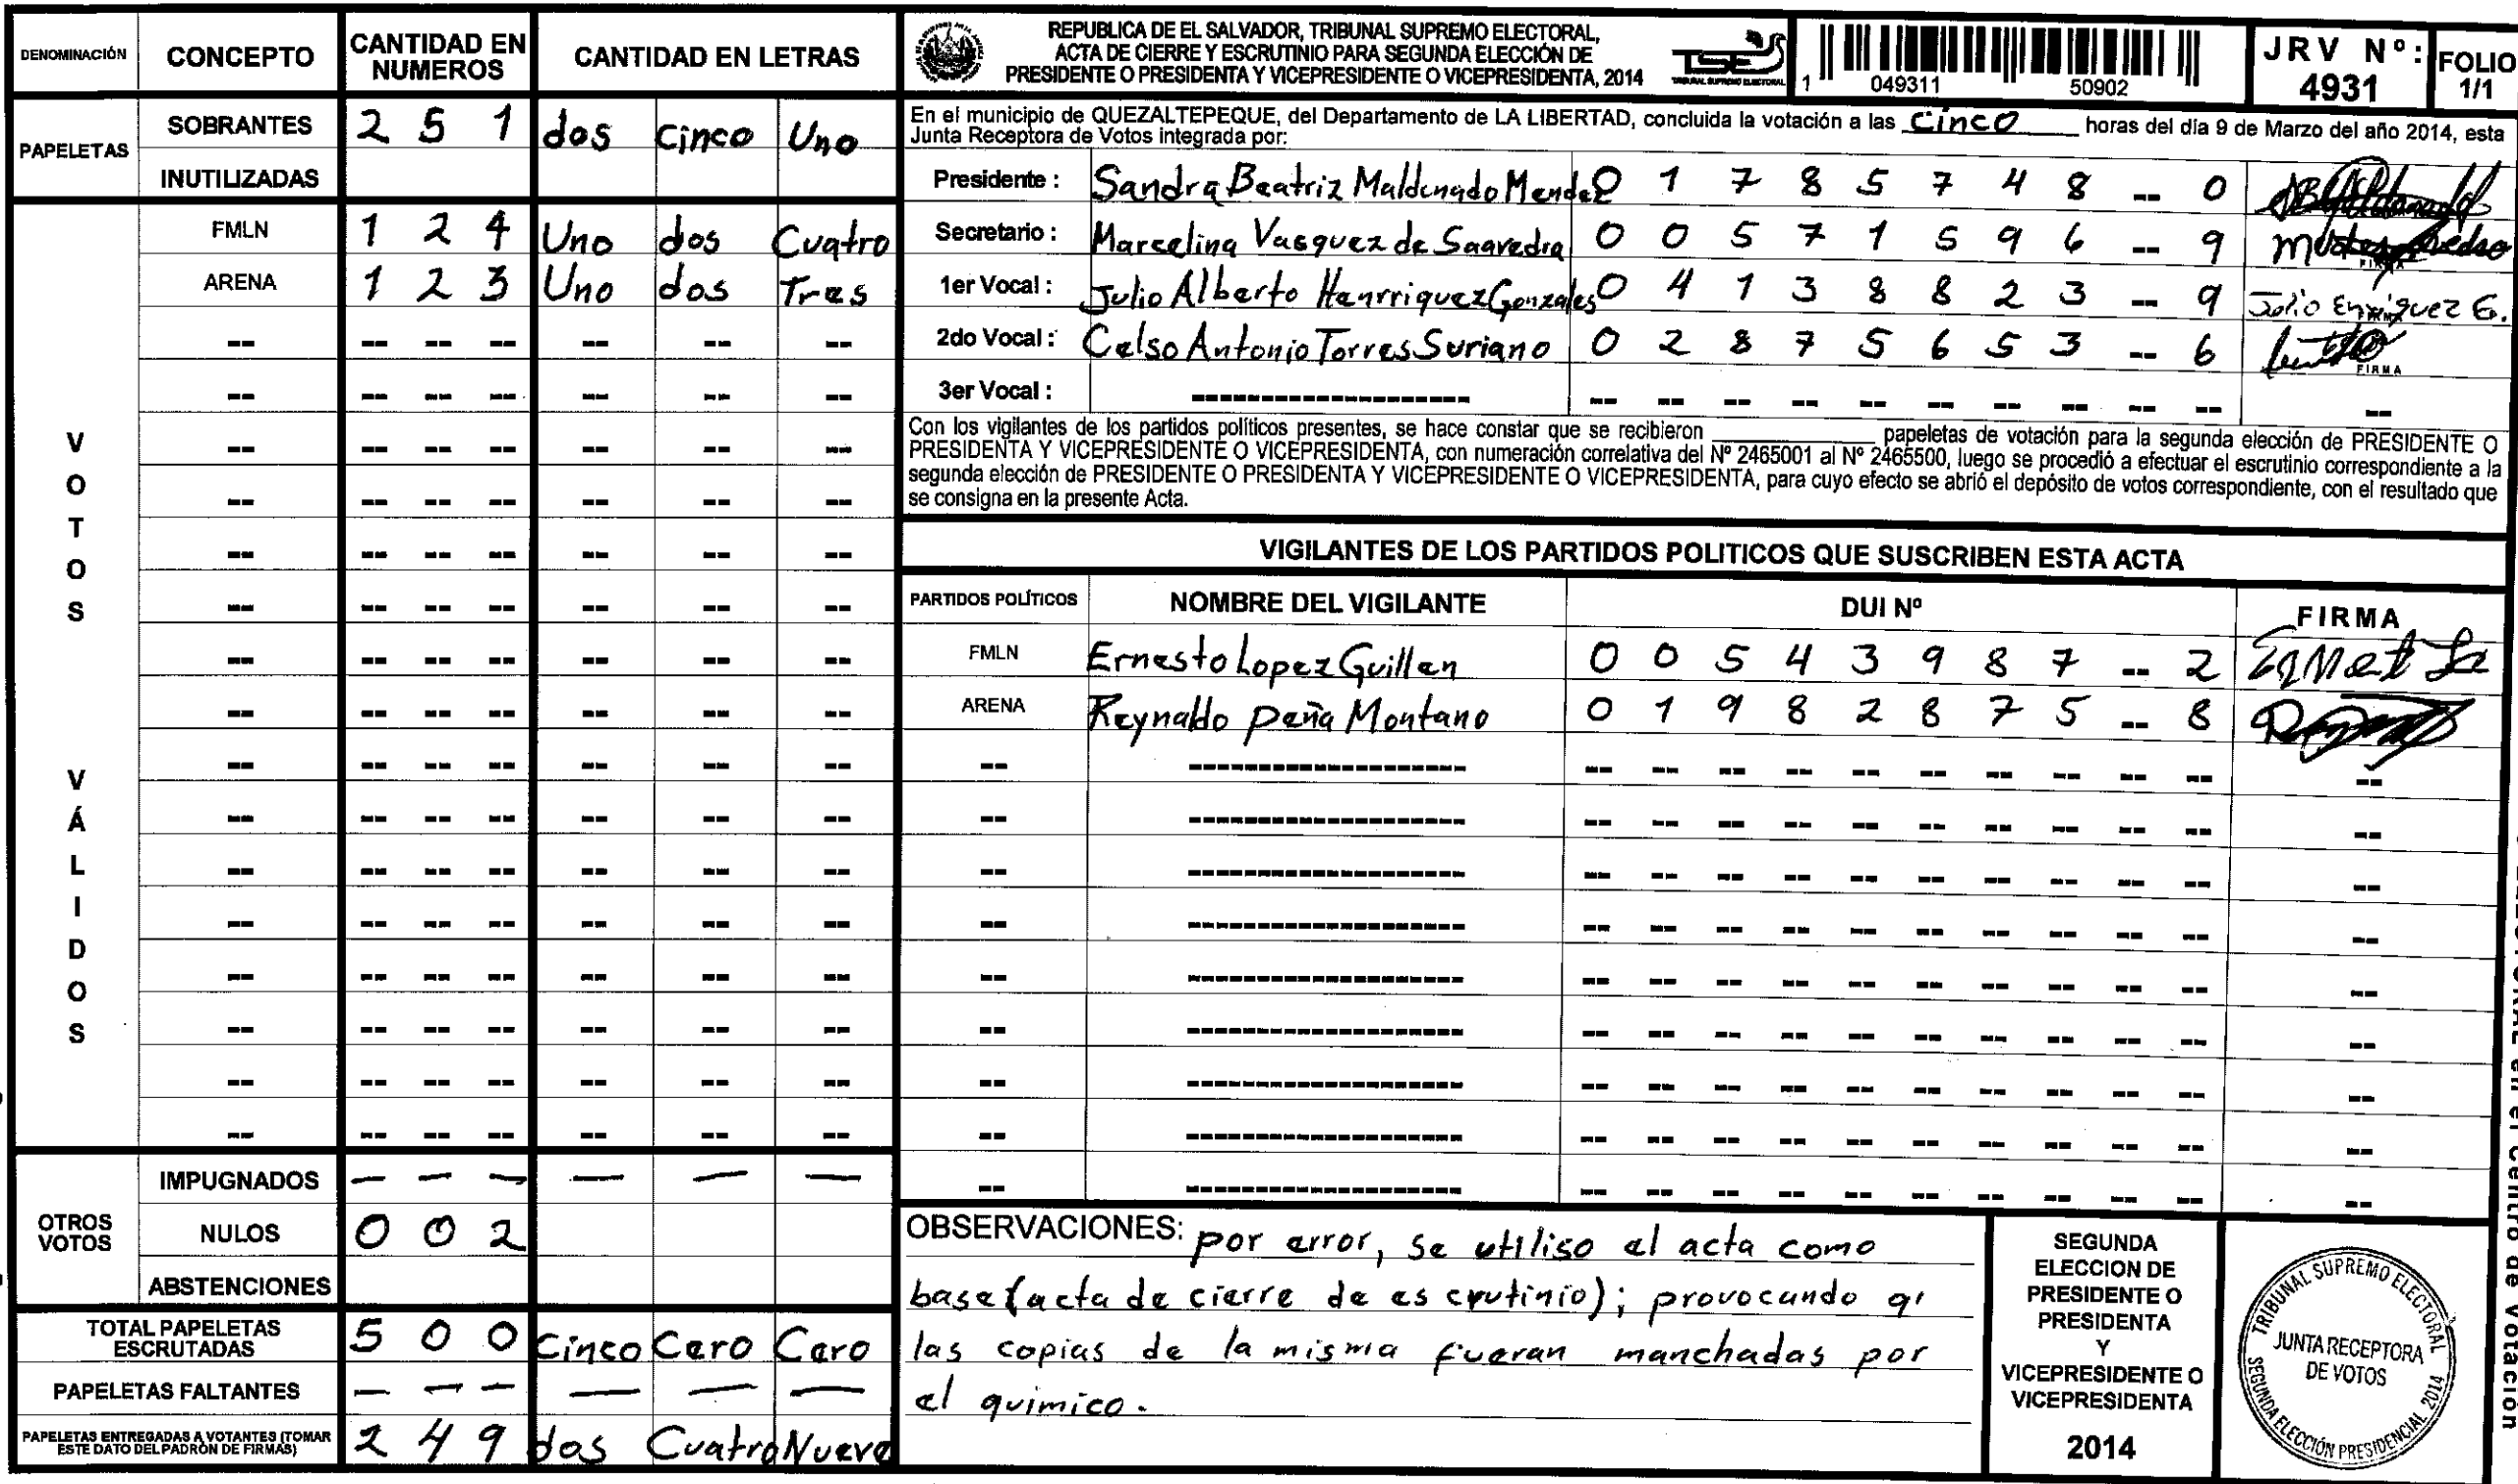 DENOMINACIÓN CONCEPTO CANTIDAD EN NUMEROS CANTIDAD EN LETRAS
PAPELETAS
SOBRANTES 2 5 1 dos Cinco Uno
INUTILIZADAS
VOTOS VÁLIDOS
FMLN 1 2 4 Uno dos Cuatro
ARENA 1 2 3 Uno dos Tres
OTROS VOTOS
IMPUGNADOS — — — — — —
NULOS 0 0 2
ABSTENCIONES
TOTAL PAPELETAS ESCRUTADAS 5 0 0 Cinco Cero Cero
PAPELETAS FALTANTES — — — — — —
PAPELETAS ENTREGADAS A VOTANTES (TOMAR ESTE DATO DEL PADRÓN DE FIRMAS) 2 4 9 dos Cuatro Nueve
REPUBLICA DE EL SALVADOR, TRIBUNAL SUPREMO ELECTORAL,
ACTA DE CIERRE Y ESCRUTINIO PARA SEGUNDA ELECCIÓN DE
PRESIDENTE O PRESIDENTA Y VICEPRESIDENTE O VICEPRESIDENTA, 2014
TSE
TRIBUNAL SUPREMO ELECTORAL
1 049311 50902
JRV Nº: 4931
FOLIO 1/1
En el municipio de QUEZALTEPEQUE, del Departamento de LA LIBERTAD, concluida la votación a las Cinco horas del día 9 de Marzo del año 2014, esta
Junta Receptora de Votos integrada por:
Presidente : Sandra Beatriz Maldonado Mendez 0 1 7 8 5 7 4 8 -- 0
Secretario : Marcelina Vasquez de Saavedra 0 0 5 7 1 5 9 6 -- 9
1er Vocal : Julio Alberto Henrriquez Gonzales 0 4 1 3 8 8 2 3 -- 9 Julio Enriquez G.
2do Vocal : Celso Antonio Torres Suriano 0 2 8 7 5 6 5 3 -- 6
FIRMA
3er Vocal :
Con los vigilantes de los partidos políticos presentes, se hace constar que se recibieron ________ papeletas de votación para la segunda elección de PRESIDENTE O
PRESIDENTA Y VICEPRESIDENTE O VICEPRESIDENTA, con numeración correlativa del Nº 2465001 al Nº 2465500, luego se procedió a efectuar el escrutinio correspondiente a la
segunda elección de PRESIDENTE O PRESIDENTA Y VICEPRESIDENTE O VICEPRESIDENTA, para cuyo efecto se abrió el depósito de votos correspondiente, con el resultado que
se consigna en la presente Acta.
VIGILANTES DE LOS PARTIDOS POLITICOS QUE SUSCRIBEN ESTA ACTA
PARTIDOS POLÍTICOS NOMBRE DEL VIGILANTE DUI Nº FIRMA
FMLN Ernesto Lopez Guillen 0 0 5 4 3 9 8 7 -- 2
ARENA Reynaldo peña Montano 0 1 9 8 2 8 7 5 -- 8
OBSERVACIONES: por error, se utiliso el acta como
base (acta de cierre de es crutinio); provocando q'
las copias de la misma fueran manchadas por
el quimico.
SEGUNDA
ELECCION DE
PRESIDENTE O
PRESIDENTA
Y
VICEPRESIDENTE O
VICEPRESIDENTA
2014
TRIBUNAL SUPREMO ELECTORAL
JUNTA RECEPTORA
DE VOTOS
SEGUNDA ELECCIÓN PRESIDENCIAL 2014
en el centro de votación